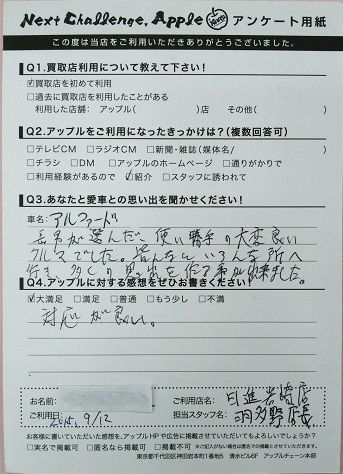 Next Challenge, Apple アンケート用紙
この度は当店をご利用いただきありがとうございました。
Q1.買取店利用について教えて下さい！
☑買取店を初めて利用
□過去に買取店を利用したことがある
利用した店舗： アップル(　　　)店　その他(　　　)
Q2.アップルをご利用になったきっかけは？(複数回答可)
□テレビCM □ラジオCM □新聞・雑誌(媒体名/　　　)
□チラシ □DM □アップルのホームページ □通りがかりで
□利用経験があるので ☑紹介 □スタッフに誘われて
Q3.あなたと愛車との思い出を聞かせください！
車名： アルファード
長男が選んだ、使い勝手の大変良い
クルマでした。皆んなといろんな所へ
行き、多くの思い出を作る事が出来ました。
Q4.アップルに対する感想をぜひお書きください！
☑大満足 □満足 □普通 □もう少し □不満
対応が良い。
お名前：
ご利用日： 2015. 9/12
ご利用店名： 日進岩崎店
担当スタッフ名： 羽多野店長
お客様に書いていただいた感想を、アップルHPや広告に掲載させていただいてもよろしいでしょうか？
□実名で掲載可 □匿名なら掲載可 □掲載不可 ※ご記入がない場合は匿名での掲載とさせていただきます。
東京都千代田区神田岩本町1番地5 清水ビル6F アップルチェーン本部